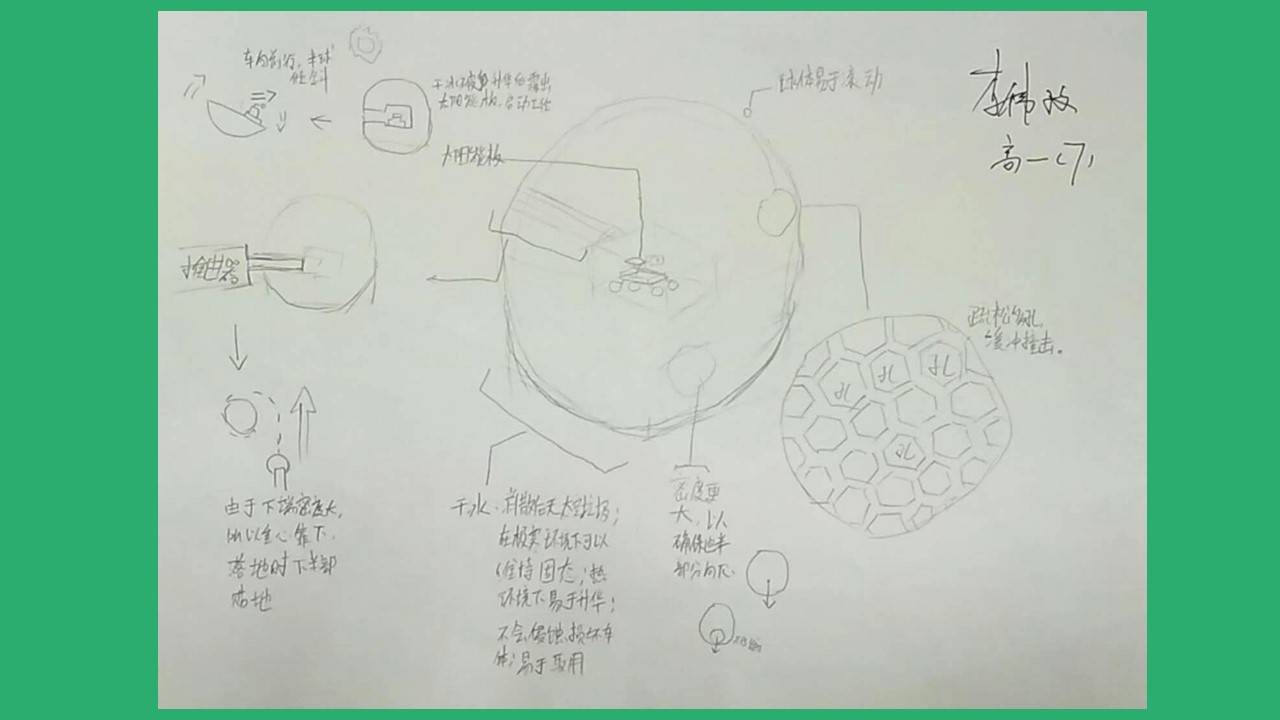 车向前行,半球
倾斜
干冰被升华后露出
太阳能板,启动工作
球体易于滚动
李伟
高一(7)
太阳能板
推进器
疏松多孔,
缓冲撞击。
孔
孔
孔
孔
由于下端密度大,
所以重心靠下.
落地时下半部
落地
干冰.
在极寒环境下可以
维持固态;热
环境下易于升华;
不会侵蚀损坏车
体;易于取用
密度更
大,以
确保此半
部分向下.